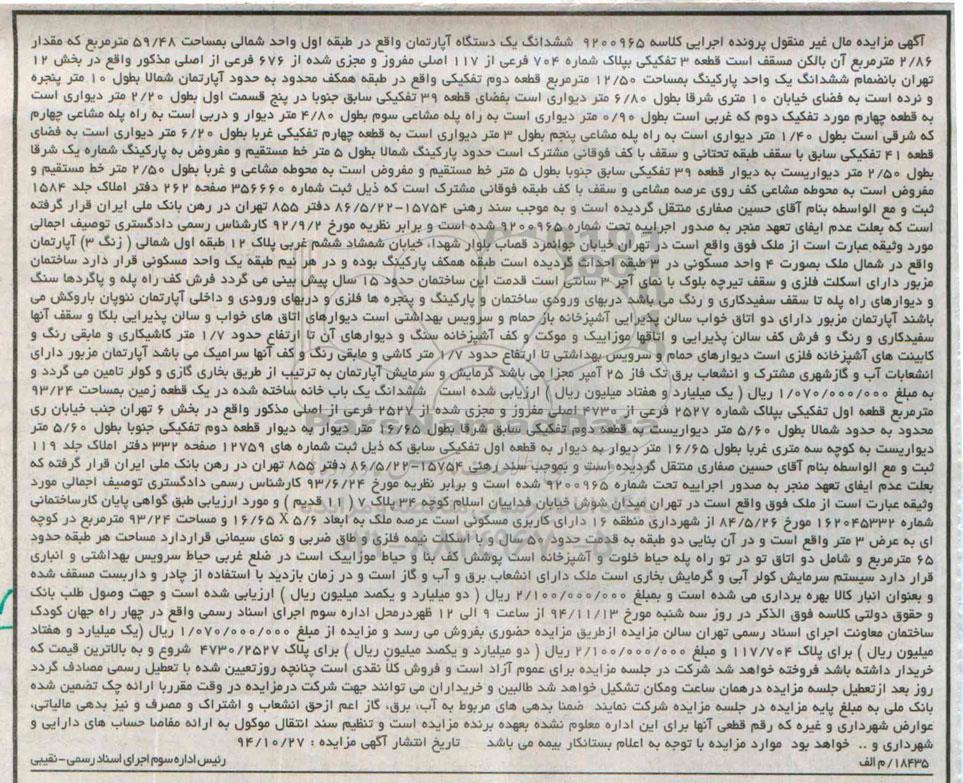 آگهی مزایده مال غیر منقول پرونده اجرایی کلاسه ۹۲۰۰۹۶۵ ششدانگ یک دستگاه آپارتمان واقع در طبقه اول واحد شمالی بمساحت ۵۹/۴۸ مترمربع که مقدار
۲/۸۶ مترمربع آن بالکن مسقف است قطعه ۳ تفکیکی بپلاک شماره ۷۰۴ فرعی از ۱۱۷ اصلی مفروز و مجزی شده از ۶۷۶ فرعی از اصلی مذکور واقع در بخش ۱۲
تهران بانضمام ششدانگ یک واحد پارکینگ بمساحت ۱۲/۵۰ مترمربع قطعه دوم تفکیکی واقع در طبقه همکف محدود به حدود آپارتمان شمالا بطول ۱۰ متر پنجره
و نرده است به فضای خیابان ۱۰ متری شرقا بطول ۶/۸۰ متر دیواری است بفضای قطعه ۳۹ تفکیکی سابق جنوبا در پنج قسمت اول بطول ۲/۲۰ متر دیواری است
به قطعه چهارم مورد تفکیک دوم که غربی است بطول ۰/۹۰ متر دیواری است به راه پله مشاعی سوم بطول ۴/۸۰ متر دیوار و دربی است به راه پله مشاعی چهارم
که شرقی است بطول ۱/۴۰ متر دیواری است به راه پله مشاعی پنجم بطول ۳ متر دیواری است به قطعه چهارم تفکیکی غربا بطول ۶/۲۰ متر دیواری است به فضای
قطعه ۴۱ تفکیکی سابق با سقف طبقه تحتانی و سقف با کف فوقانی مشترک است حدود پارکینگ شمالا بطول ۵ متر خط مستقیم و مفروض به پارکینگ شماره یک شرقا
بطول ۲/۵۰ متر دیواریست به دیوار قطعه ۳۹ تفکیکی سابق جنوبا بطول ۵ متر خط مستقیم و مفروض است به محوطه مشاعی و غربا بطول ۲/۵۰ متر خط مستقیم و
مفروض است به محوطه مشاعی کف روی عرصه مشاعی و سقف با کف طبقه فوقانی مشترک است که ذیل ثبت شماره ۳۵۶۶۶۰ صفحه ۲۶۲ دفتر املاک جلد ۱۵۸۴
ثبت و مع الواسطه بنام آقای حسین صفاری منتقل گردیده است و به موجب سند رهنی ۱۵۷۵۴-۸۶/۵/۲۲ دفتر ۸۵۵ تهران در رهن بانک ملی ایران قرار گرفته
است که بعلت عدم ایفای تعهد منجر به صدور اجراییه تحت شماره ۹۲۰۰۹۶۵ شده است و برابر نظریه مورخ ۹۲/۹/۲ کارشناس رسمی دادگستری توصیف اجمالی
مورد وثیقه عبارت است از ملک فوق واقع است در تهران خیابان جوانمرد قصاب بلوار شهدا، خیابان شمشاد ششم غربی پلاک ۱۲ طبقه اول شمالی ( زنگ ۳) آپارتمان
واقع در شمال ملک بصورت ۴ واحد مسکونی در ۴ طبقه احداث گردیده است طبقه همکف پارکینگ بوده و در هر نیم طبقه یک واحد مسکونی قرار دارد ساختمان
مزبور دارای اسکلت فلزی و سقف تیرچه بلوک با نمای آجر ۳ سانتی است قدمت این ساختمان حدود ۱۵ سال پیش بینی می گردد فرش کف راه پله و پاگردها سنگ
و دیوارهای راه پله تا سقف سفیدکاری و رنگ می باشد دربهای ورودی ساختمان و پارکینگ و پنجره ها فلزی و دربهای ورودی و داخلی آپارتمان نئوپان باروکش می
باشند آپارتمان مزبور دارای دو اتاق خواب سالن پذیرایی آشپزخانه باز حمام و سرویس بهداشتی است دیوارهای اتاق های خواب و سالن پذیرایی بلکا و سقف آنها
سفیدکاری و رنگ و فرش کف سالن پذیرایی و اتاقها موزاییک و موکت و کف آشپزخانه سنگ و دیوارهای آن تا ارتفاع حدود ۱/۷ متر کاشیکاری و مابقی رنگ و
کابینت های آشپزخانه فلزی است دیوارهای حمام و سرویس بهداشتی تا ارتفاع حدود ۱/۷ متر کاشی و مابقی رنگ و کف آنها سرامیک می باشد آپارتمان مزبور دارای
انشعابات آب و گازشهری مشترک و انشعاب برق تک فاز ۲۵ آمپر مجزا می باشد گرمایش و سرمایش آپارتمان به ترتیب از طریق بخاری گازی و کولر تامین می گردد و
به مبلغ ۱/۰۷۰/۰۰۰/۰۰۰ ریال ( یک میلیارد و هفتاد میلیون ریال ) ارزیابی شده است ششدانگ یک باب خانه ساخته شده در یک قطعه زمین بمساحت ۹۳/۲۴
مترمربع قطعه اول تفکیکی بپلاک شماره ۲۵۲۷ فرعی از ۴۷۳۰ اصلی مفروز و مجزی شده از ۲۵۲۷ فرعی از اصلی مذکور واقع در بخش ۶ تهران جنب خیابان ری
محدود به حدود شمالا بطول ۵/۶۰ متر دیواریست به قطعه دوم تفکیکی سابق شرقا بطول ۱۶/۶۵ متر دیوار به دیوار قطعه دوم تفکیکی جنوبا بطول ۵/۶۰ متر
دیواریست به کوچه سه متری غربا بطول ۱۶/۶۵ متر دیوار به دیوار به قطعه اول تفکیکی سابق که ذیل ثبت شماره های ۱۲۷۵۹ صفحه ۳۳۲ دفتر املاک جلد ۱۱۹
ثبت و مع الواسطه بنام آقای حسین صفاری منتقل گردیده است و بموجب سند رهنی ۱۵۷۵۴-۸۶/۵/۲۲ دفتر ۸۵۵ تهران در رهن بانک ملی ایران قرار گرفته که
بعلت عدم ایفای تعهد منجر به صدور اجراییه تحت شماره ۹۲۰۰۹۶۵ شده است و برابر نظریه مورخ ۹۳/۶/۲۴ کارشناس رسمی دادگستری توصیف اجمالی مورد
وثیقه عبارت است از ملک فوق واقع است در تهران میدان شوش خیابان فداییان اسلام کوچه ۳۴ پلاک ۷ (۱۱ قدیم ) و مورد ارزیابی طبق گواهی پایان کارساختمانی
شماره ۱۶۲۰۴۵۳۳۲ مورخ ۸۴/۵/۲۶ از شهرداری منطقه ۱۶ دارای کاربری مسکونی است عرصه ملک به ابعاد ۵/۶ X ۱۶/۶۵ و مساحت ۹۳/۲۴ مترمربع در کوچه
ای به عرض ۳ متر واقع است و در آن بنایی دو طبقه به قدمت حدود ۵۰ سال و با اسکلت نیمه فلزی و طاق ضربی و نمای سیمانی قراردارد مساحت هر طبقه حدود
۶۵ مترمربع و شامل دو اتاق تو در تو راه پله حیاط خلوت و آشپزخانه است پوشش کف بنا و حیاط موزاییک است در ضلع غربی حیاط سرویس بهداشتی و انباری
قرار دارد سیستم سرمایش کولر آبی و گرمایش بخاری است ملک دارای انشعاب برق و آب و گاز است و در زمان بازدید با استفاده از چادر و داربست مسقف شده
و بعنوان انبار کالا بهره برداری می شده است و بمبلغ ۲/۱۰۰/۰۰۰/۰۰۰ ریال ( دو میلیارد و یکصد میلیون ریال ) ارزیابی شده است و جهت وصول طلب بانک
و حقوق دولتی کلاسه فوق الذکر در روز سه شنبه مورخ ۹۴/۱۱/۱۳ از ساعت ۹ الی ۱۲ ظهردرمحل اداره سوم اجرای اسناد رسمی واقع در چهار راه جهان کودک
ساختمان معاونت اجرای اسناد رسمی تهران سالن مزایده ازطریق مزایده حضوری بفروش می رسد و مزایده از مبلغ ۱/۰۷۰/۰۰۰/۰۰۰ ریال (یک میلیارد و هفتاد
میلیون ریال ) برای پلاک ۱۱۷/۷۰۴ و مبلغ ۲/۱۰۰/۰۰۰/۰۰۰ ریال ( دو میلیارد و یکصد میلیون ریال ) برای پلاک ۴۷۳۰/۲۵۲۷ شروع و به بالاترین قیمت که
خریدار داشته باشد فروخته خواهد شد شرکت در جلسه مزایده برای عموم آزاد است و فروش کلا نقدی است چنانچه روزتعیین شده با تعطیل رسمی مصادف گردد
روز بعد ازتعطیل جلسه مزایده درهمان ساعت ومکان تشکیل خواهد شد طالبین و خریداران می توانند جهت شرکت درمزایده در وقت مقرربا ارائه چک تضمین شده
بانک ملی به مبلغ پایه مزایده در جلسه مزایده شرکت نمایند ضمنا بدهی های مربوط به آب، برق، گاز اعم ازحق انشعاب و اشتراک و مصرف و نیز بدهی مالیاتی،
عوارض شهرداری و غیره که رقم قطعی آنها برای این اداره معلوم نشده بعهده برنده مزایده است و تنظیم سند انتقال موکول به ارائه مفاصا حساب های دارایی و
شهرداری و .. خواهد بود موارد مزایده با توجه به اعلام بستانکار بیمه می باشد تاریخ انتشار آگهی مزایده : ۹۴/۱۰/۲۷
۱۸۴۳۵/ م الف رئیس اداره سوم اجرای اسناد رسمی - نقیبی